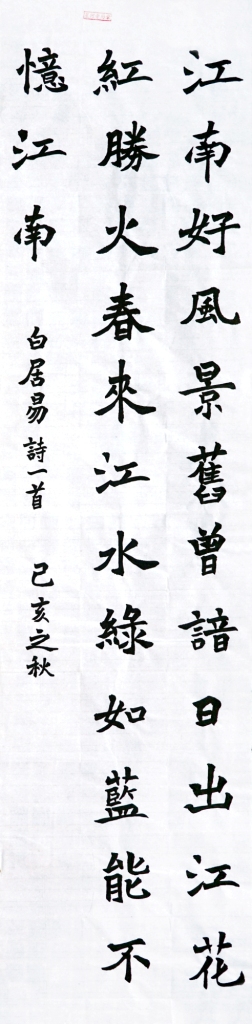 江南好風景舊曾諳日出江花
紅勝火春來江水綠如藍能不
憶江南
白居易詩一首 己亥之秋